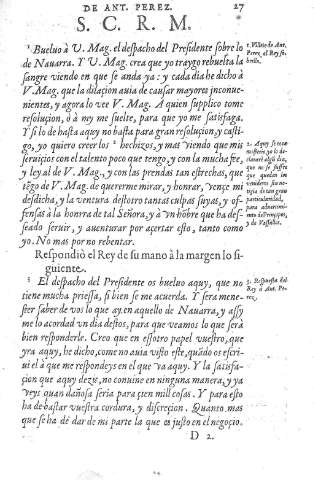 DE ANT. PEREZ. 27
S. C. R. M.
¹ Bueluo à V. Mag. el despacho del Presidente sobre lo
de Nauarra. Y V. Mag. crea que yo traygo rebuelta la
sangre viendo en que se anda ya: y cada dia he dicho à
V. Mag. que la dilaçion auia de causar mayores jnconue-
nientes, y agora lo vee V. Mag. A quien supplico tome
resoluçion, ô à ney me suelte, para que yo me satisfaga.
Y si lo de hasta aquy no basta para gran resoluçion, y casti-
go, yo quiero creer los ² hechizos, y mas viendo que mis
seruiçios con el talento poco que tengo, y con la mucha fee,
y ley al de V. Mag., y con las prendas tan estrechas, que
tẽgo de V. Mag. de quererme mirar, y honrar, vençe mi
desdicha, y la ventura destotro tantas culpas suyas, y of-
fensas à la honrra de tal Señora, y à vn hõbre que ha des-
seado seruir, y auenturar por açertar esto, tanto como
yo. No mas por no rebentar.
Respondiò el Rey de su mano à la margen lo si-
guiente.
³ El despacho del Presidente os bueluo aquy, que no
tiene mucha priessa, si bien se me acuerda. Y sera mene-
ster saber de vos lo que ay en aquello de Nauarra, y assy
me lo acordad vn dia destos, para que veamos lo que serà
bien responderle. Creo que en essotro papel vuestro, que
yra aquy, he dicho, como no auia visto este, quãdo os escri-
ui el à que me respondeys en el que va aquy. Y la satisfa-
çion que aquy dezis, no conuine en ninguna manera, y ya
veys quan dañosa seria para çien mill cosas. Y para esto
ha de bastar vuestra cordura, y discreçion. Quanto mas
que se ha dé dar de mi parte la que es justo en el negocio.
D 2.
1. Villete de Ant.
Perez, al Rey so-
bre lo.
2. Aquy se
3. Respuesta del
Rey à Ant. Pe-
rez.